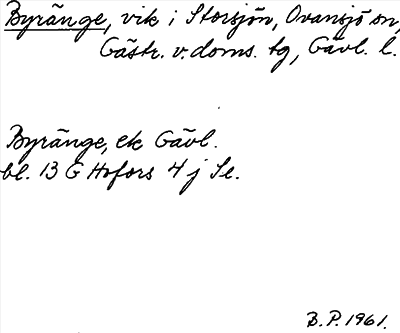 Byränge, vik i Storsjön, Ovansjö sn,
Gästr. v. doms. tg, Gävl. l.
Byränge, ek Gävl.
bl. 13 G Hofors 4 j Se.
B.P. 1961.